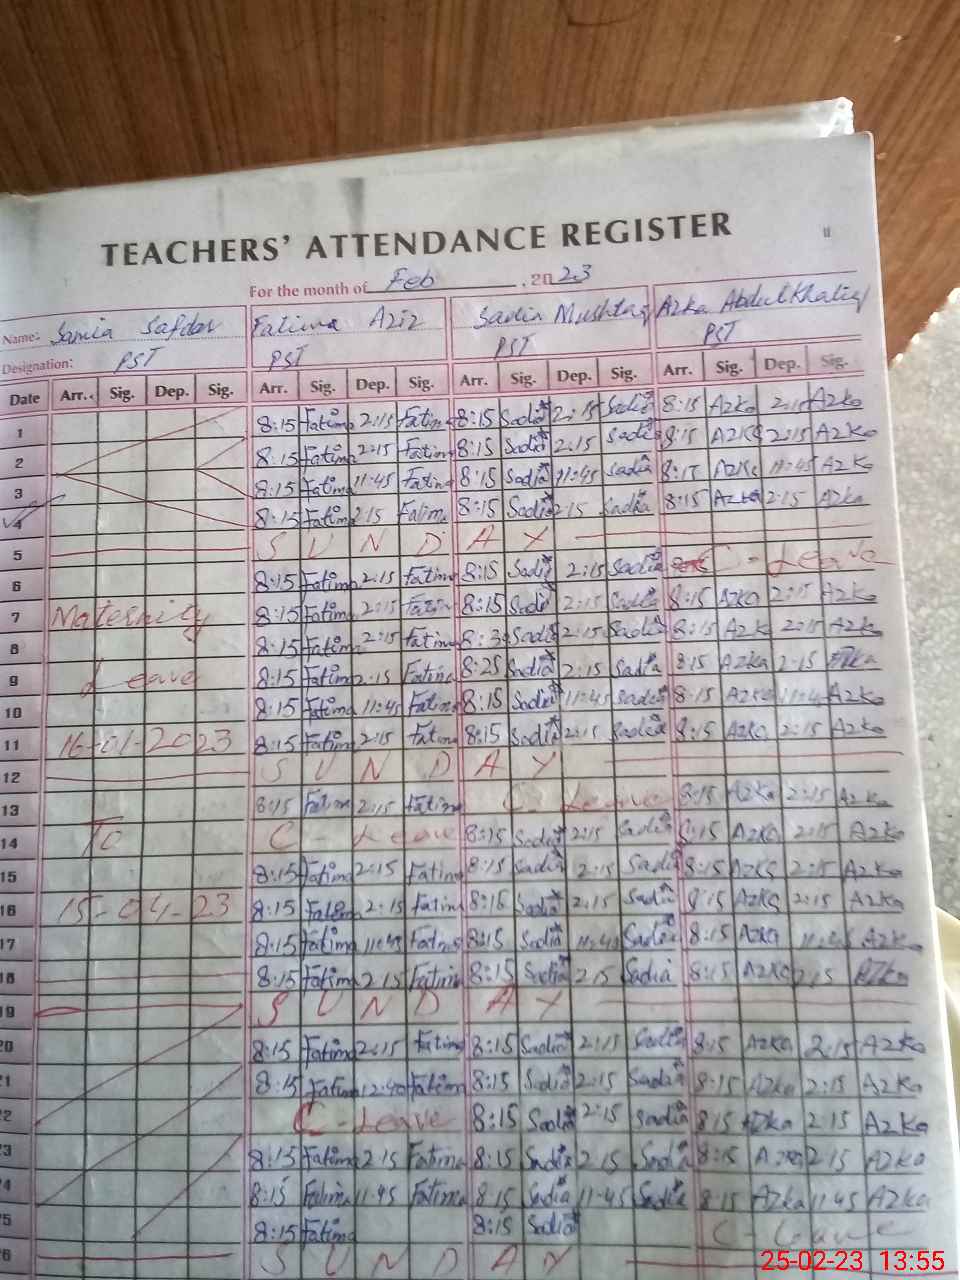 TEACHERS' ATTENDANCE REGISTER
II
For the month of Feb , 2023
Name: Samia Safdar Fatima Aziz Sadia Mushtaq Azka Abdul Khaliq
Designation: PST PST PST PST
Date Arr. Sig. Dep. Sig. Arr. Sig. Dep. Sig. Arr. Sig. Dep. Sig. Arr. Sig. Dep. Sig.
1 8:15 Fatima 2:15 Fatima 8:15 Sadia 2:15 Sadia 8:15 Azka 2:15 Azka
2 8:15 Fatima 2:15 Fatima 8:15 Sadia 2:15 Sadia 8:15 Azka 2:15 Azka
3 8:15 Fatima 11:45 Fatima 8:15 Sadia 11:45 Sadia 8:15 Azka 11:45 Azka
4 8:15 Fatima 2:15 Fatima 8:15 Sadia 2:15 Sadia 8:15 Azka 2:15 Azka
5 SUNDAY
6 8:15 Fatima 2:15 Fatima 8:15 Sadia 2:15 Sadia C-Leave
7 Maternity 8:15 Fatima 2:15 Fatima 8:15 Sadia 2:15 Sadia 8:15 Azka 2:15 Azka
8 8:15 Fatima 2:15 Fatima 8:30 Sadia 2:15 Sadia 8:15 Azka 2:15 Azka
9 Leave 8:15 Fatima 2:15 Fatima 8:25 Sadia 2:15 Sadia 8:15 Azka 2:15 Azka
10 8:15 Fatima 11:45 Fatima 8:15 Sadia 11:45 Sadia 8:15 Azka 11:45 Azka
11 16-01-2023 8:15 Fatima 2:15 Fatima 8:15 Sadia 2:15 Sadia 8:15 Azka 2:15 Azka
12 SUNDAY
13 8:15 Fatima 2:15 Fatima C-Leave 8:15 Azka 2:15 Azka
14 To C-Leave 8:15 Sadia 2:15 Sadia 8:15 Azka 2:15 Azka
15 8:15 Fatima 2:15 Fatima 8:15 Sadia 2:15 Sadia 8:15 Azka 2:15 Azka
16 15-04-23 8:15 Fatima 2:15 Fatima 8:15 Sadia 2:15 Sadia 8:15 Azka 2:15 Azka
17 8:15 Fatima 11:45 Fatima 8:15 Sadia 11:45 Sadia 8:15 Azka 11:45 Azka
18 8:15 Fatima 2:15 Fatima 8:15 Sadia 2:15 Sadia 8:15 Azka 2:15 Azka
19 SUNDAY
20 8:15 Fatima 2:15 Fatima 8:15 Sadia 2:15 Sadia 8:15 Azka 2:15 Azka
21 8:15 Fatima 12:40 Fatima 8:15 Sadia 2:15 Sadia 8:15 Azka 2:15 Azka
22 C-Leave 8:15 Sadia 2:15 Sadia 8:15 Azka 2:15 Azka
23 8:15 Fatima 2:15 Fatima 8:15 Sadia 2:15 Sadia 8:15 Azka 2:15 Azka
24 8:15 Fatima 11:45 Fatima 8:15 Sadia 11:45 Sadia 8:15 Azka 11:45 Azka
25 8:15 Fatima 8:15 Sadia C-Leave
26 SUNDAY
25-02-23 13:55